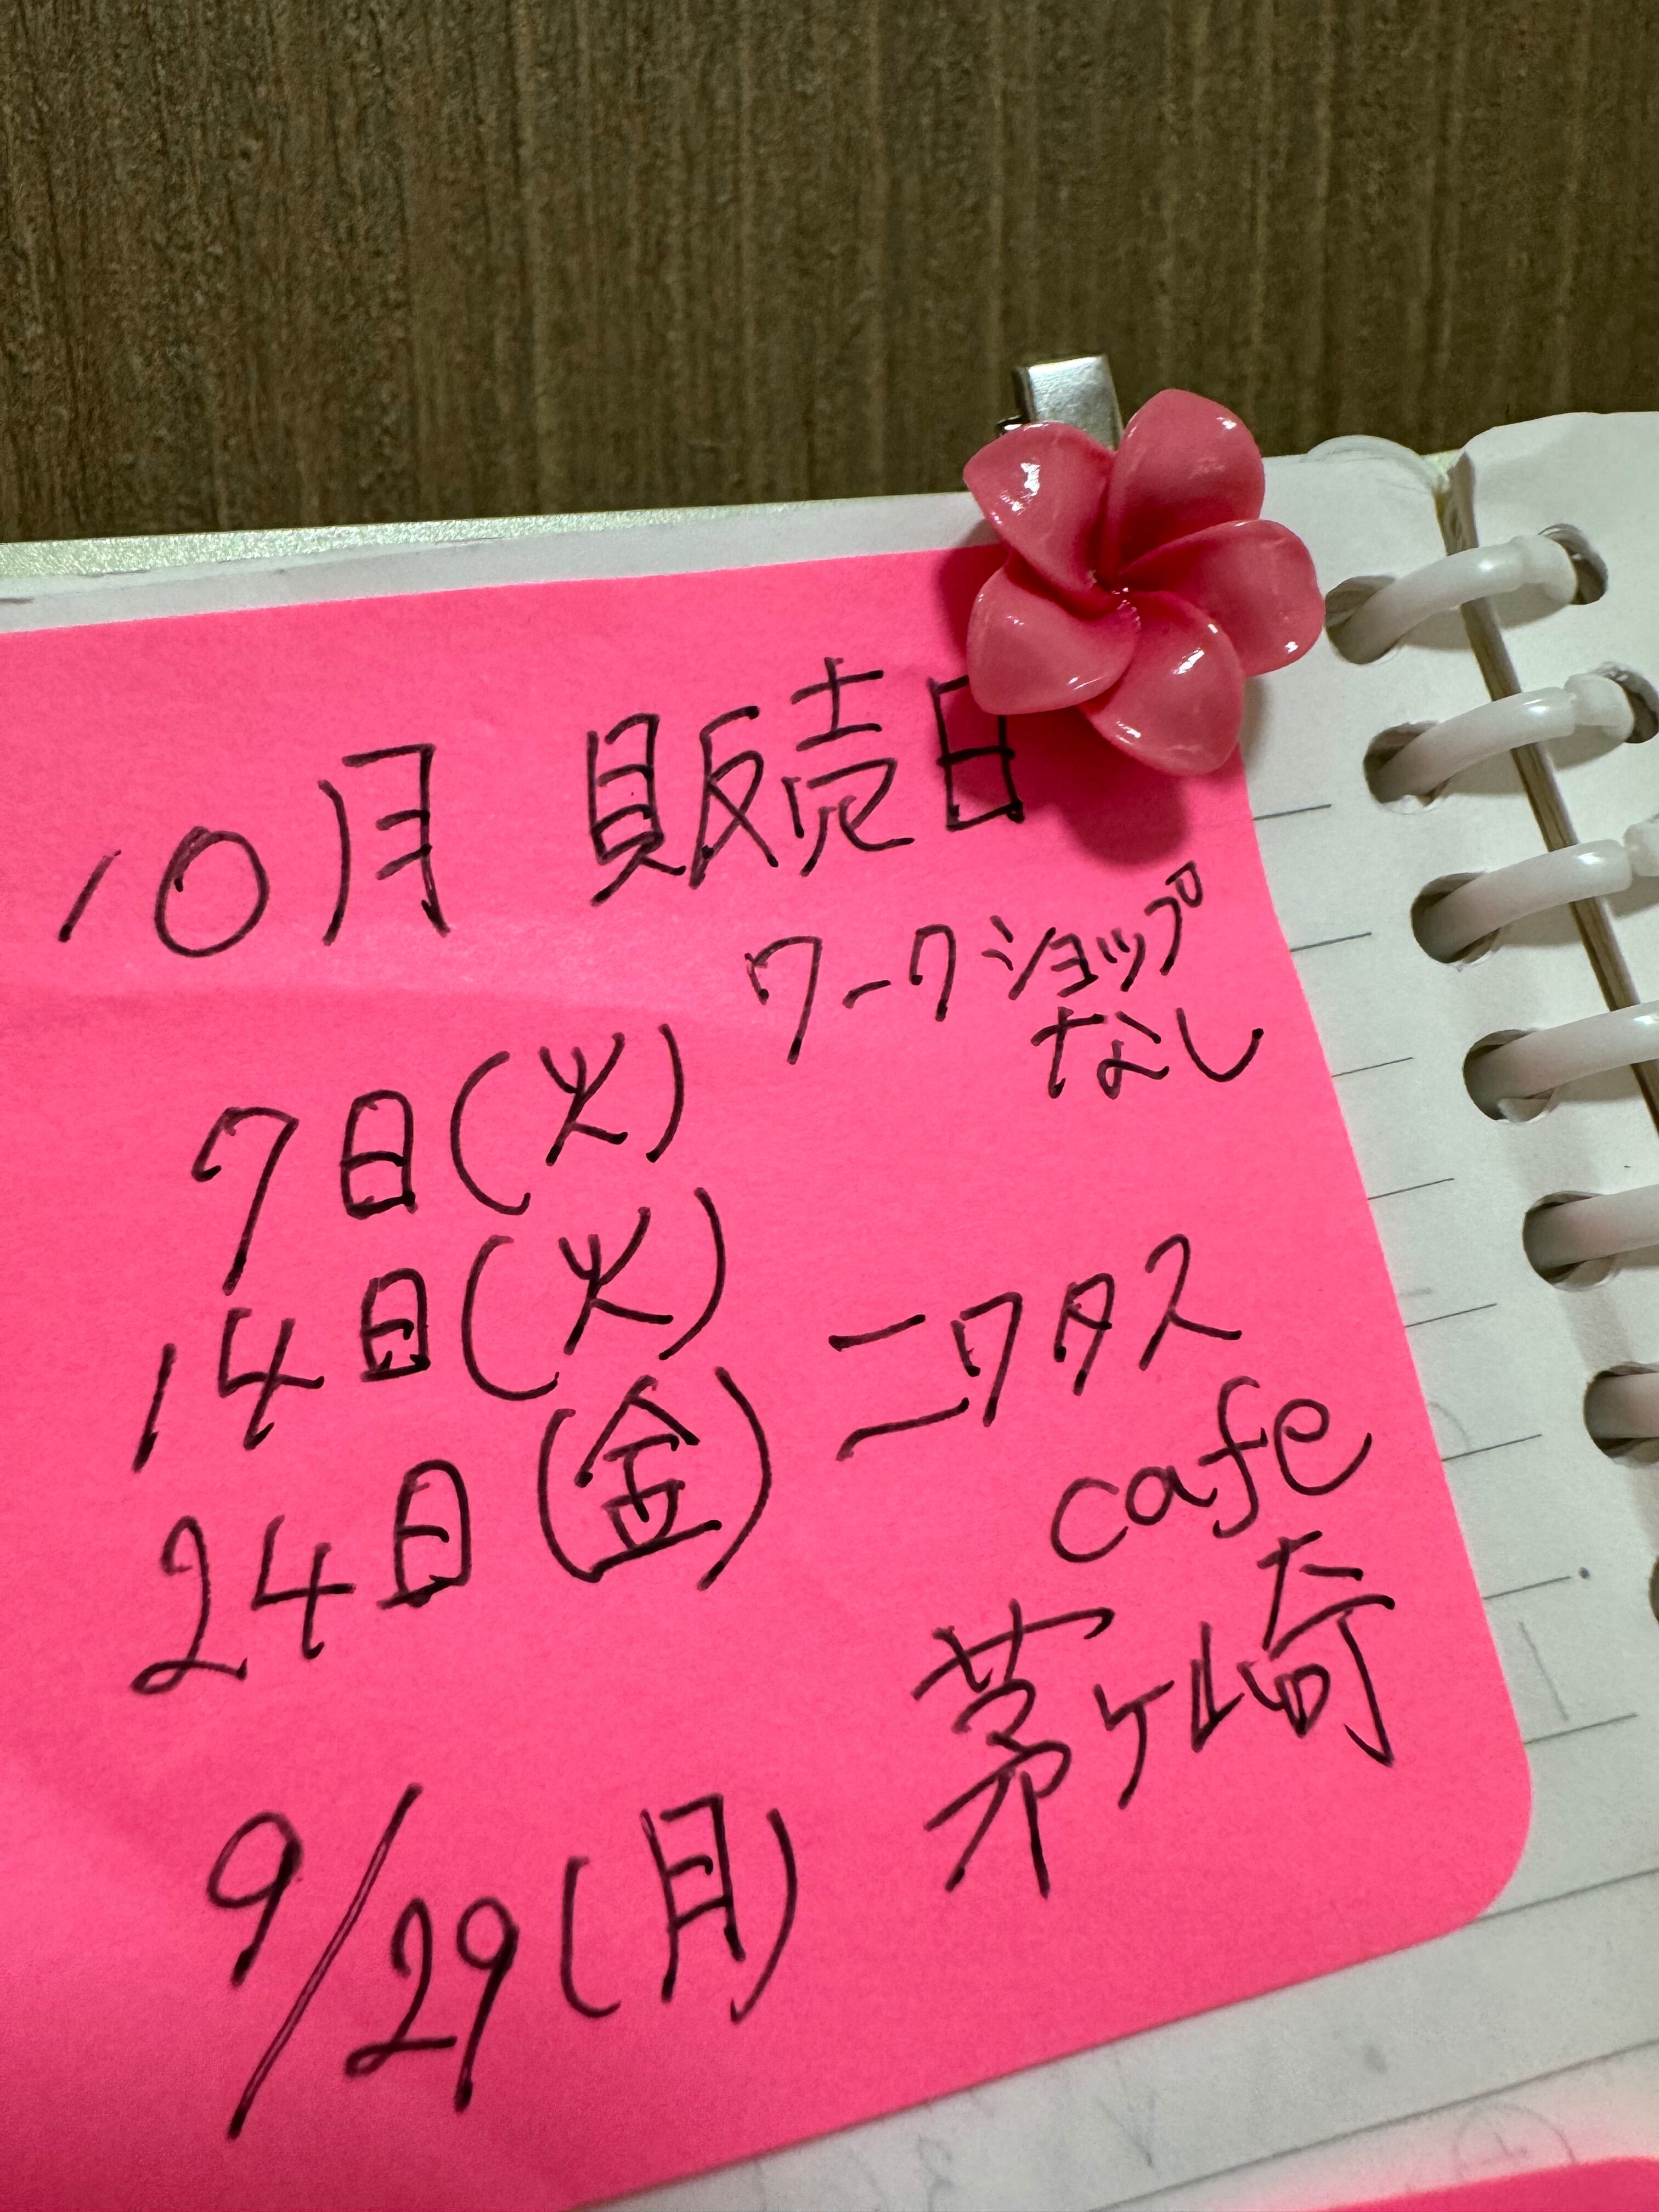 10月 販売日
ワークショップ
なし
7日(火)
14日(火)
24日(金)
ニワタス
cafe
茅ヶ崎
9/29(月)